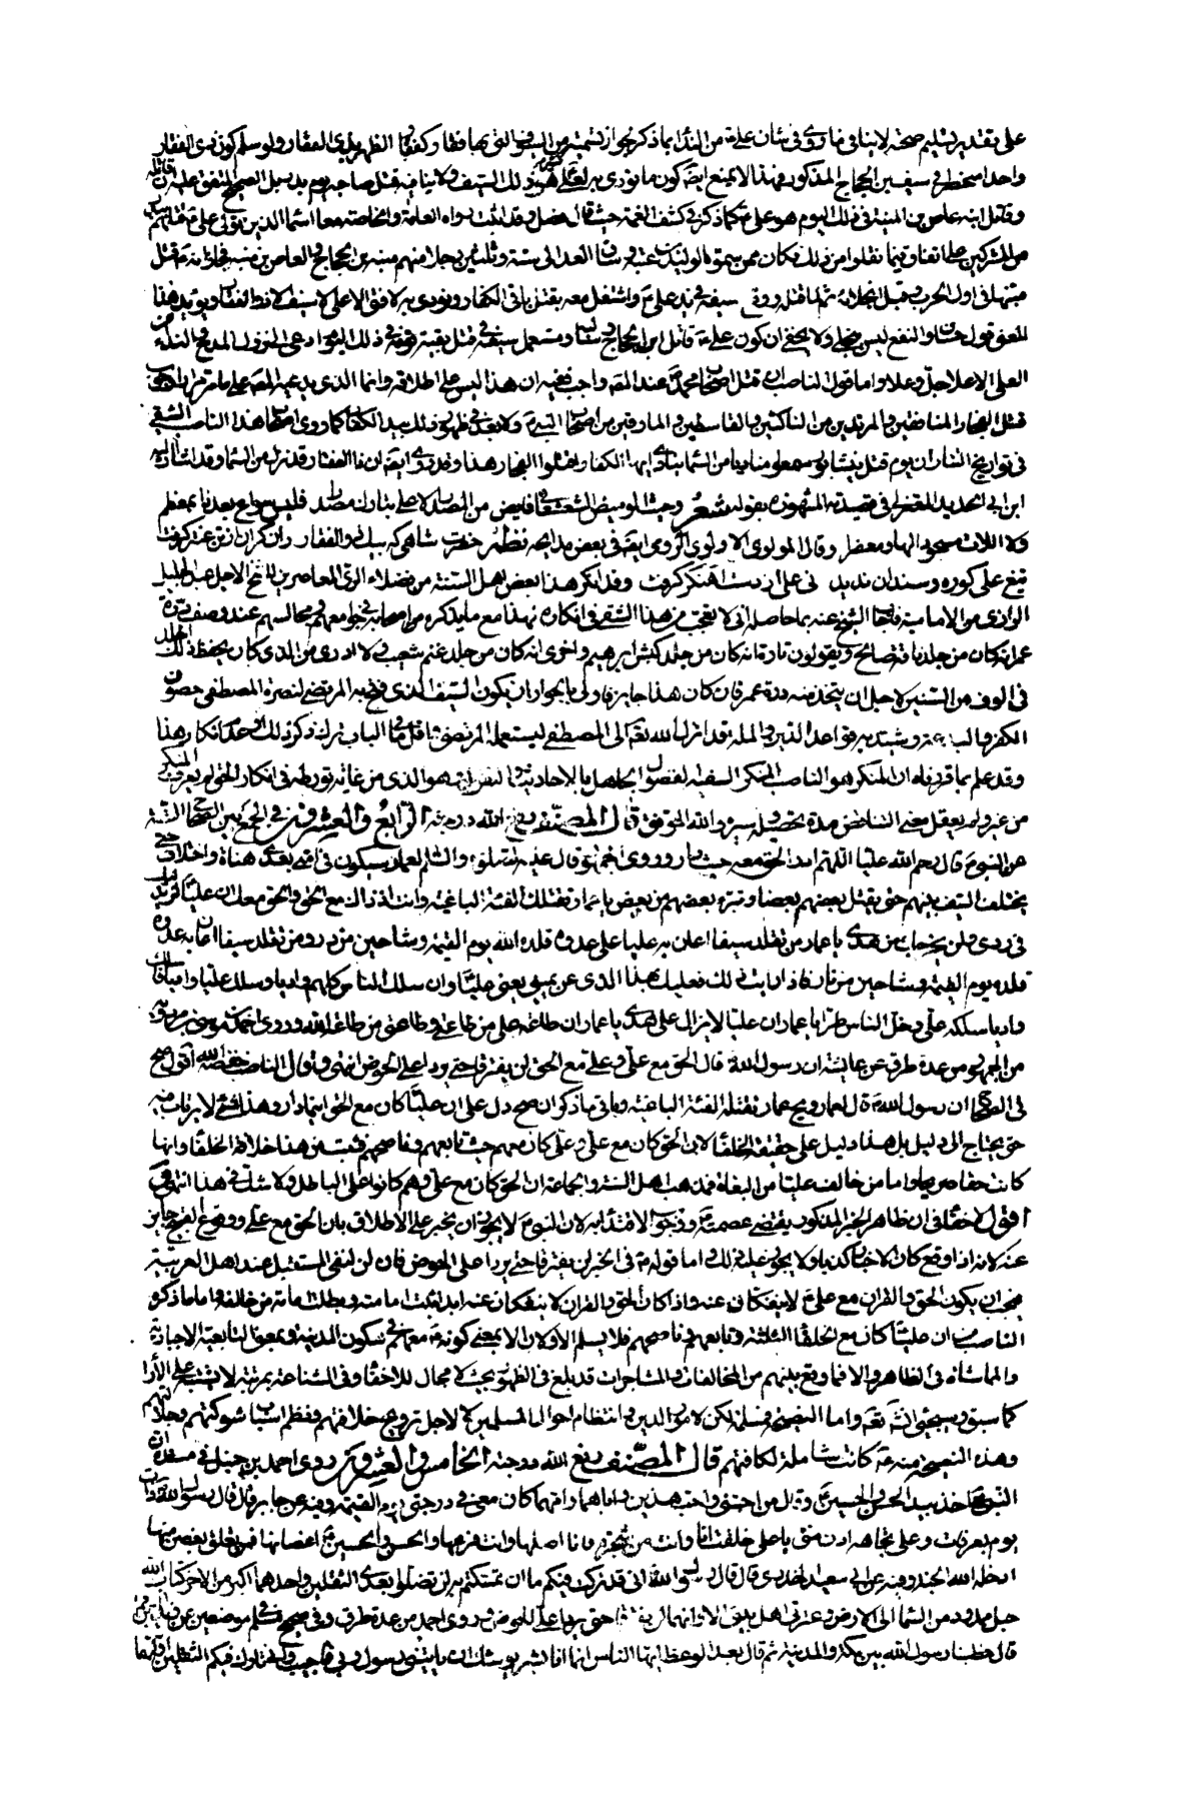 على تقدير تسليم صحته لا ينافي ما روي في شان علي ع من النداء بما ذكر لجواز تسمية من السيوف التي بها فقار وكفقار الظهر بذي الفقار ولو سلم كون ذي الفقار
واحدا منحصرا في سيف بن الحجاج المذكور فهذا لا يمنع ايضا كون ما نودي به لعلي هو ذلك السيف ولا ينافيه قتل صاحبه يوم بدر بل الصحيح المتفق عليه ان قاتله
وقاتل ابنه عاص بن المنبه في ذلك اليوم هو علي ع كما ذكر في كشف الغمة حيث قال فصل وقد اثبت رواه العامة والخاصة معا اسماء الذين تولى علي ع قتلهم ببدر
من المشركين على اتفاق فيما نقلوا من ذلك فكان ممن سموه الوليد بن عتبة وساق العدد الى ستة وثلثين رجلا منهم منبه بن الحجاج والعاص بن منبه فجاز انه ع قتل
منبها في اول الحرب وقبل انجلائه ثم لما قتله ووقع سيفه في يد علي ع واشتغل معه بقتل باقي الكفار ونودي به لا فتى الا علي لا سيف الا ذو الفقار ويؤيد هذا
المعنى قول حسان والنقع ليس بمنجلي ولا يخفى ان كون علي ع قاتل ابن الحجاج
العلي الاعلا جل وعلا واما قول الناصب ان قتل اصحاب محمد عند المص واجب ففيه ان هذا ليس على اطلاقه وانما الذي يدعيه المص على ما مر مرارا وجوب
قتل الكفار المنافقين والمرتدين من الناكثين والقاسطين والمارقين من اصحاب النبي ص ولا بعد في ظهور ذلك بيد الكفار كما روى اصحاب هذا الناصب الشقي
في تواريخ التتار ان يوم قتل نيشابور سمعوا مناديا من السماء ينادي ايها الكفار اقتلوا الفجار هذا وقد روي ايضا ان ذا الفقار قد نزل من السماء وقد اشار اليه
ابن ابي الحديد المعتزلي في قصيدته المشهورة بقوله شعر وحيث الوميض الشعشعاني فايض من المصدر الاعلى تبارك مصدرا فليس سواع بعدها بمعظم
ولا اللات مسجودا لها ومعفرا وقال المولوي الرومي ايضا في بعض مدايحه نظم
تيغ علي كوره وسندان نديد
الرازي من الامامية فاجاب الشيخ عنه بما حاصله اني لا تعجب من هذا الشقي في انكاره لهذا مع ما يذكره من اصحابه في جوامعهم ومجالسهم عند وصف درة
عمر انه كان من جلد ناقة صالح ويقولون تارة انه كان من جلد كبش ابرهيم واخرى انه كان من جلد غنم شعيب ولا ادري من الذي كان يحفظ ذلك الجلد
في الوف من السنين لاجل ان يتخذ منه درة عمر فان كان هذا جايزا فاولى بالجواز ان يكون السيف الذي فتح به المرتضى لنصرة المصطفى حصون
الكفر ويشيد به قواعد الدين والملة قد انزل الله تعالى الى المصطفى ليستعمله المرتضى
وقد علم بما قررناه ان المنكر هو الناصب المنكر السفيه الفضول الجاهل بالاحاديث والنقول بل هو الذي من غاية تورطه في انكار الحق لم يعرف المنكر
من غيره ولم يعقل معنى التناقض مدة تحصيله وسيره والله الموفق قال المصنف رفع الله درجته الرابع والعشرون في الجمع بين الصحاح الستة
عن النبي ص قال رحم الله عليا اللهم ادر الحق معه حيث دار وروى الجمهور قال عليه الصلوة والسلم لعمار سيكون في امتي بعدي هناة واختلاف حتى
يختلف السيف بينهم حتى يقتل بعضهم بعضا وتبرء بعضهم من بعض يا عمار تقتلك الفئة الباغية وانت اذ ذاك مع الحق والحق معك ان عليا لن يدليك
في ردى ولن يخرجك من هدى يا عمار من تقلد سيفا اعان به عليا على عدوه قلده الله يوم القيمة وشاحين من در ومن تقلد سيفا اعان به عدوه
قلده يوم القيمة وشاحين من نار فاذا رايت ذلك فعليك بهذا الذي عن يميني يعني عليا وان سلك الناس كلهم واديا وسلك علي واديا فاسلك
واديا سلكه علي وخل الناس طرا يا عمار ان عليا لا يزال على هدى يا عمار ان طاعة علي من طاعتي وطاعتي من طاعة الله وروى احمد بن موسى بن مردويه
من الجمهور من عدة طرق عن عايشة ان رسول الله قال الحق مع علي وعلي مع الحق لن يفترقا حتى يردا علي الحوض انتهى وقال الناصب خفضه الله اقول صح
في الصحاح ان رسول الله ص قال لعمار ويح عمار تقتله الفئة الباغية وباقي ما ذكر ان صح دل على ان عليا كان مع الحق اينما دار وهذا شيء لا يرتاب فيه
حتى يحتاج الى دليل بل هذا دليل على حقيقة الخلفاء لان الحق كان مع علي وعلي كان معهم حيث تابعهم وناصحهم فثبت من هذا خلافة الخلفاء وانها
كانت حقا واما من خالف عليا من البغاة فمذهب اهل السنة والجماعة ان الحق كان مع علي وهم كانوا على الباطل ولا شك في هذا انتهى
اقول لا خفاء في ان ظاهر الخبر المذكور يقتضي عصمته ووجوب الاقتداء به لان النبي ص لا يجوز ان يخبر على الاطلاق بان الحق مع علي ووقوع القبيح جايز
عنه لانه اذا وقع كان الاخبار كذبا ولا يجوز عليه ذلك واما قوله ص في الخبر لن يفترقا حتى يردا علي الحوض فان لن لنفي المستقبل عند اهل العربية
فيجب ان يكون الحق والقران مع علي ع لا ينفكان عنه واذا كان الحق والقران لا ينفكان عنه ابدا ثبتت امامته وبطلت امامة من خالفه واما ما ذكره
الناصب من ان عليا كان مع الخلفاء الثلثة وتابعهم وناصحهم فلا يسلم الاولان الا بمعنى كونه ع معهم في سكون المدينة وبمعنى التابعية الاجبارية
والمماشاة في الظاهر والا فما وقع بينهم من المخالفات والمشاجرات قد بلغ في الظهور بحيث لا مجال للاخفاء وفي الشناعة بمرتبة لا يشتبه على الآراء
كما سبق وسيجيء انشاء الله تعالى واما النصيحة فمسلمة لكن لامور الدين وانتظام احوال المسلمين لا لاجل ترويج خلافتهم ونظم اسباب شوكتهم وجلالتهم
وهذه النصيحة منه ع كانت شاملة لكافتهم قال المصنف رفع الله درجته الخامس والعشرون روى احمد بن حنبل في مسنده ان
النبي ص اخذ بيد الحسن والحسين ع وقال من احبني واحب هذين واباهما وامهما كان معي في درجتي يوم القيمة وفيه عن جابر قال قال رسول الله ص ذات
يوم بعرفات وعلي تجاهه ادن مني يا علي خلقت انا وانت من شجرة فانا اصلها وانت فرعها والحسن والحسين ع اغصانها فمن تعلق بغصن منها
ادخله الله الجنة وفيه عن ابي سعيد الخدري قال قال رسول الله اني قد تركت فيكم ما ان تمسكتم به لن تضلوا بعدي الثقلين واحدهما اكبر من الاخر كتاب الله
حبل ممدود من السماء الى الارض وعترتي اهل بيتي الا وانهما لن يفترقا حتى يردا علي الحوض وروى احمد من عدة طرق وفي صحيح مسلم في موضعين عن زيد بن ارقم
قال خطبنا رسول الله بين مكة والمدينة ثم قال بعد الوعظ ايها الناس انما انا بشر يوشك ان ياتيني رسول ربي فاجيب واني تارك فيكم الثقلين اولهما